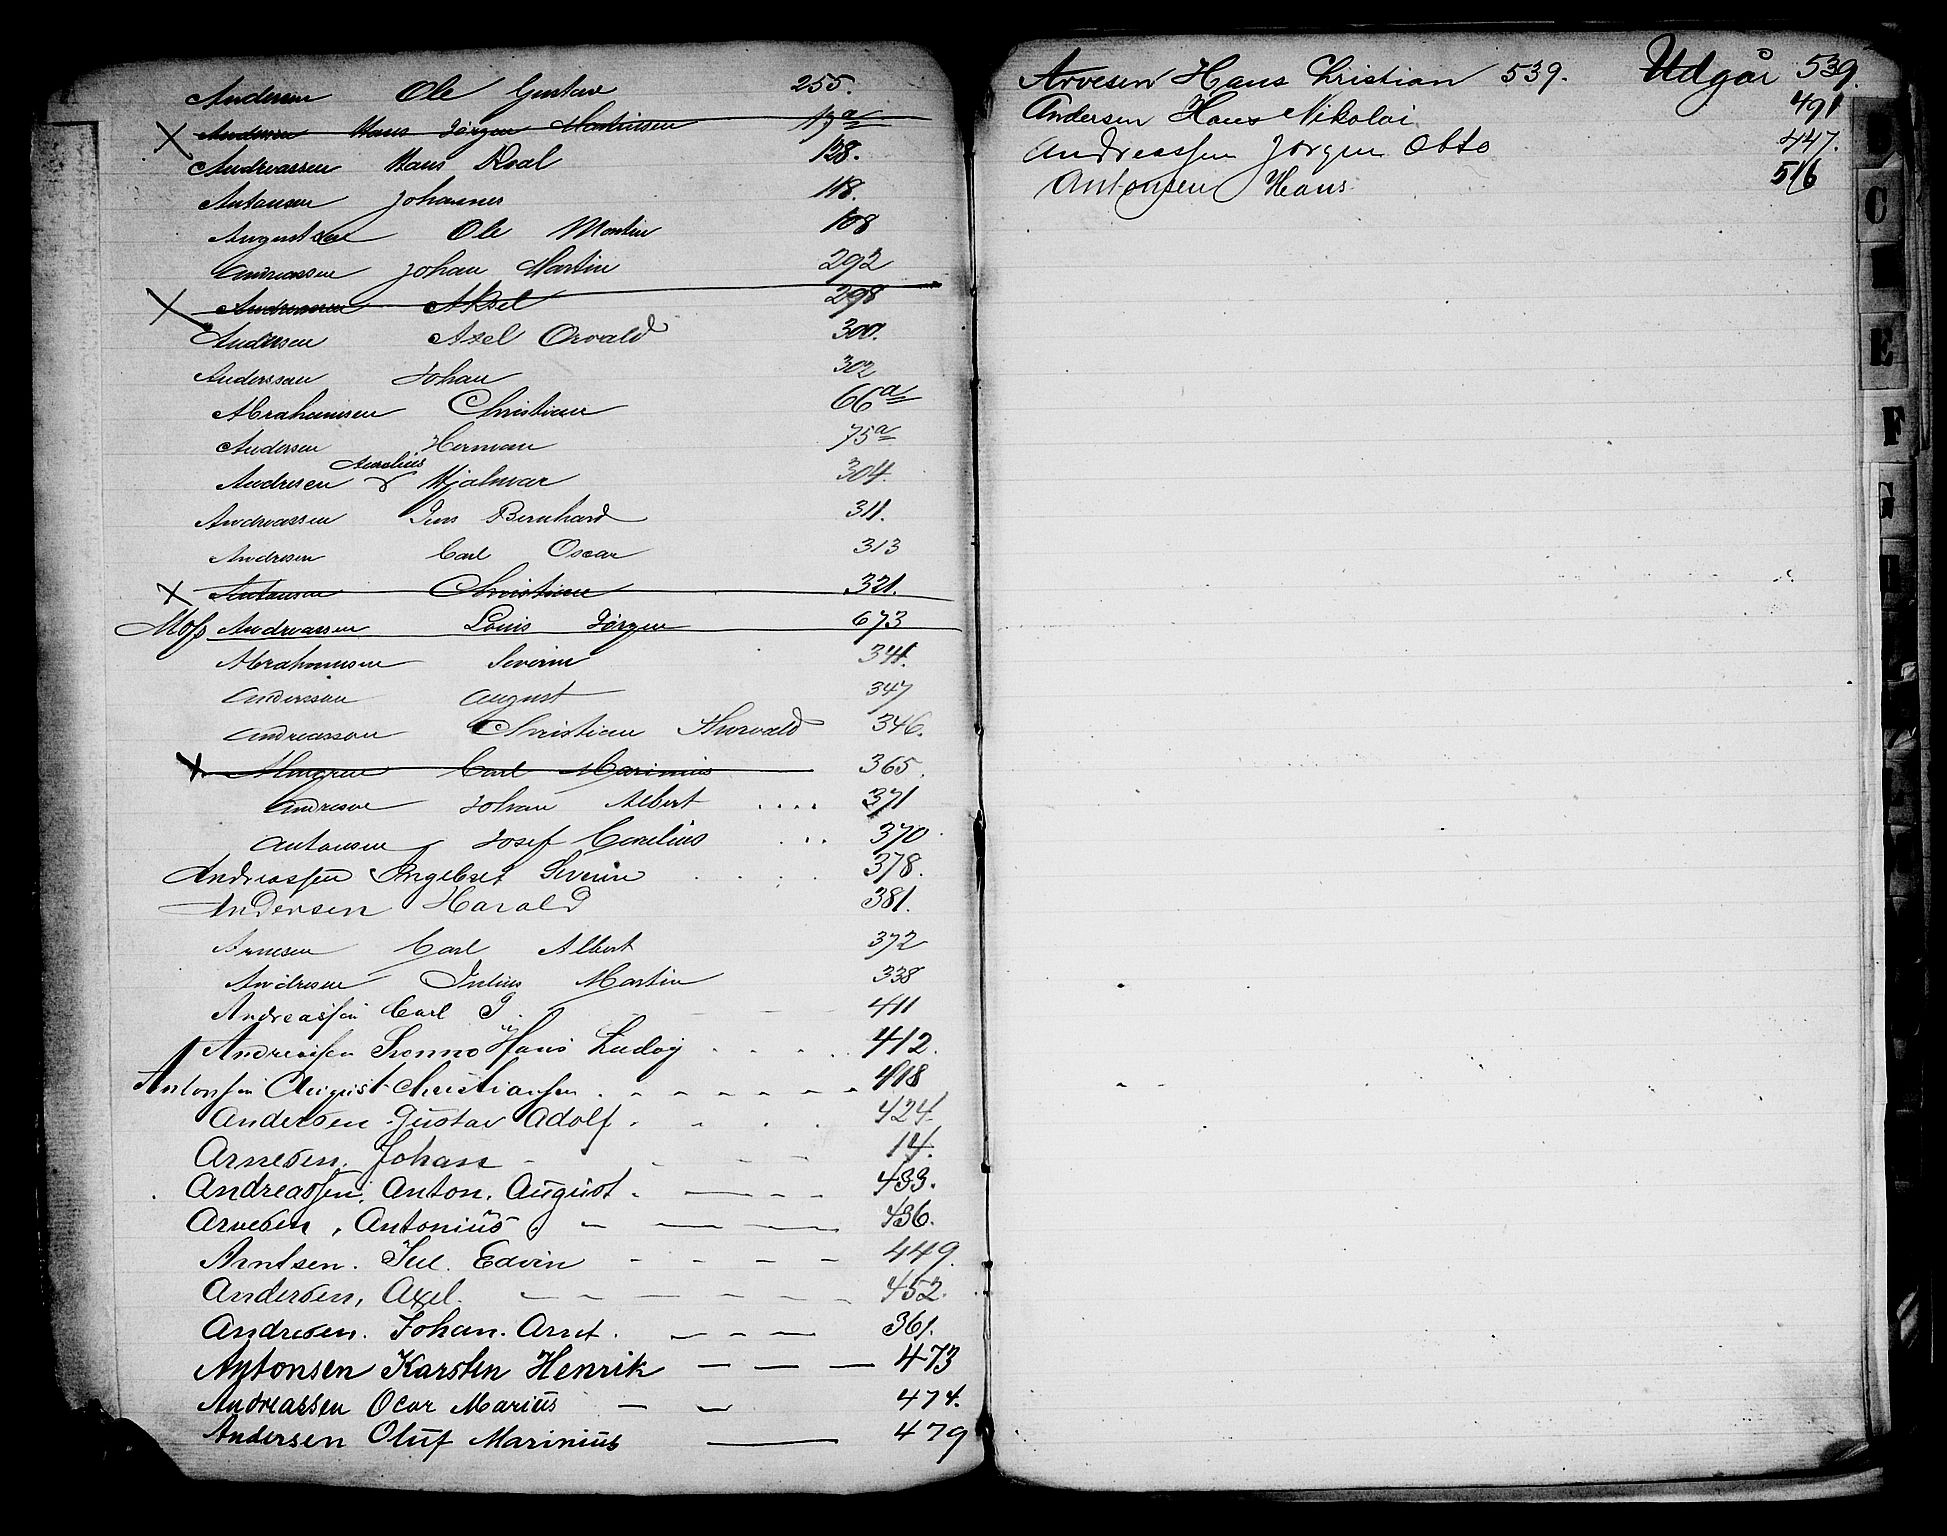 Andersen Ole Gustav 255.
X Andersen Hans Jørgen Martinsen 17a
Andreassen Hans Roal 128.
Antonsen Johannes 118.
Augustsen Ole Martin 108
Andreassen Johan Martin 292
X Andreassen Aksel 298
Andersen Axel Orvald 300.
Anderssen Johan 302
Abrahamsen Christian 66a
Andersen Herman 75a
Aurelius
Andresen Hjalmar 304.
Andreassen Jens Bernhard 311.
Andresen Carl Oscar 313
X Antonsen Christian 321.
Moss Andreassen Louis Jørgen 673
Abrahamsen Severin 341.
Andersen August 347
Andreassen Christian Thorvald 346.
X Carl Marinius 365.
Andresen Johan Albert .... 371
Antonsen Josef Cornelius ... 370.
Andreassen Ingebret Severin .... 378.
Andersen Harald 381.
Arnesen Carl Albert 372
Andresen Julius Martin 338
Andreassen Carl J. - - - 411
Andreassen Hans Ludvig .... 412.
Antonssen August Christiansen . - - - - - 418
Andersen Gustav Adolf . - . . 424.
Arnesen. Johan - - - - 14.
Andreassen. Anton. August. - - - 433.
Arvesen, Antonius. - - - 436.
Arntsen. Jul. Edvin - - - - 449.
Andersen, Axel. - - - - - 452.
Andresen. Johan. Arnt. - - - 361.
Antonsen Karsten Henrik - - - 473
Andreassen Ocar Marius - - 474.
Andersen Oluf Marinius - 479
Arvesen Hans Christian 539. Udgår 539.
Andersen Hans Nikolai 491
Andreassen Jørgen Otto 447.
Antonsen Hans 516
C
E
F
G